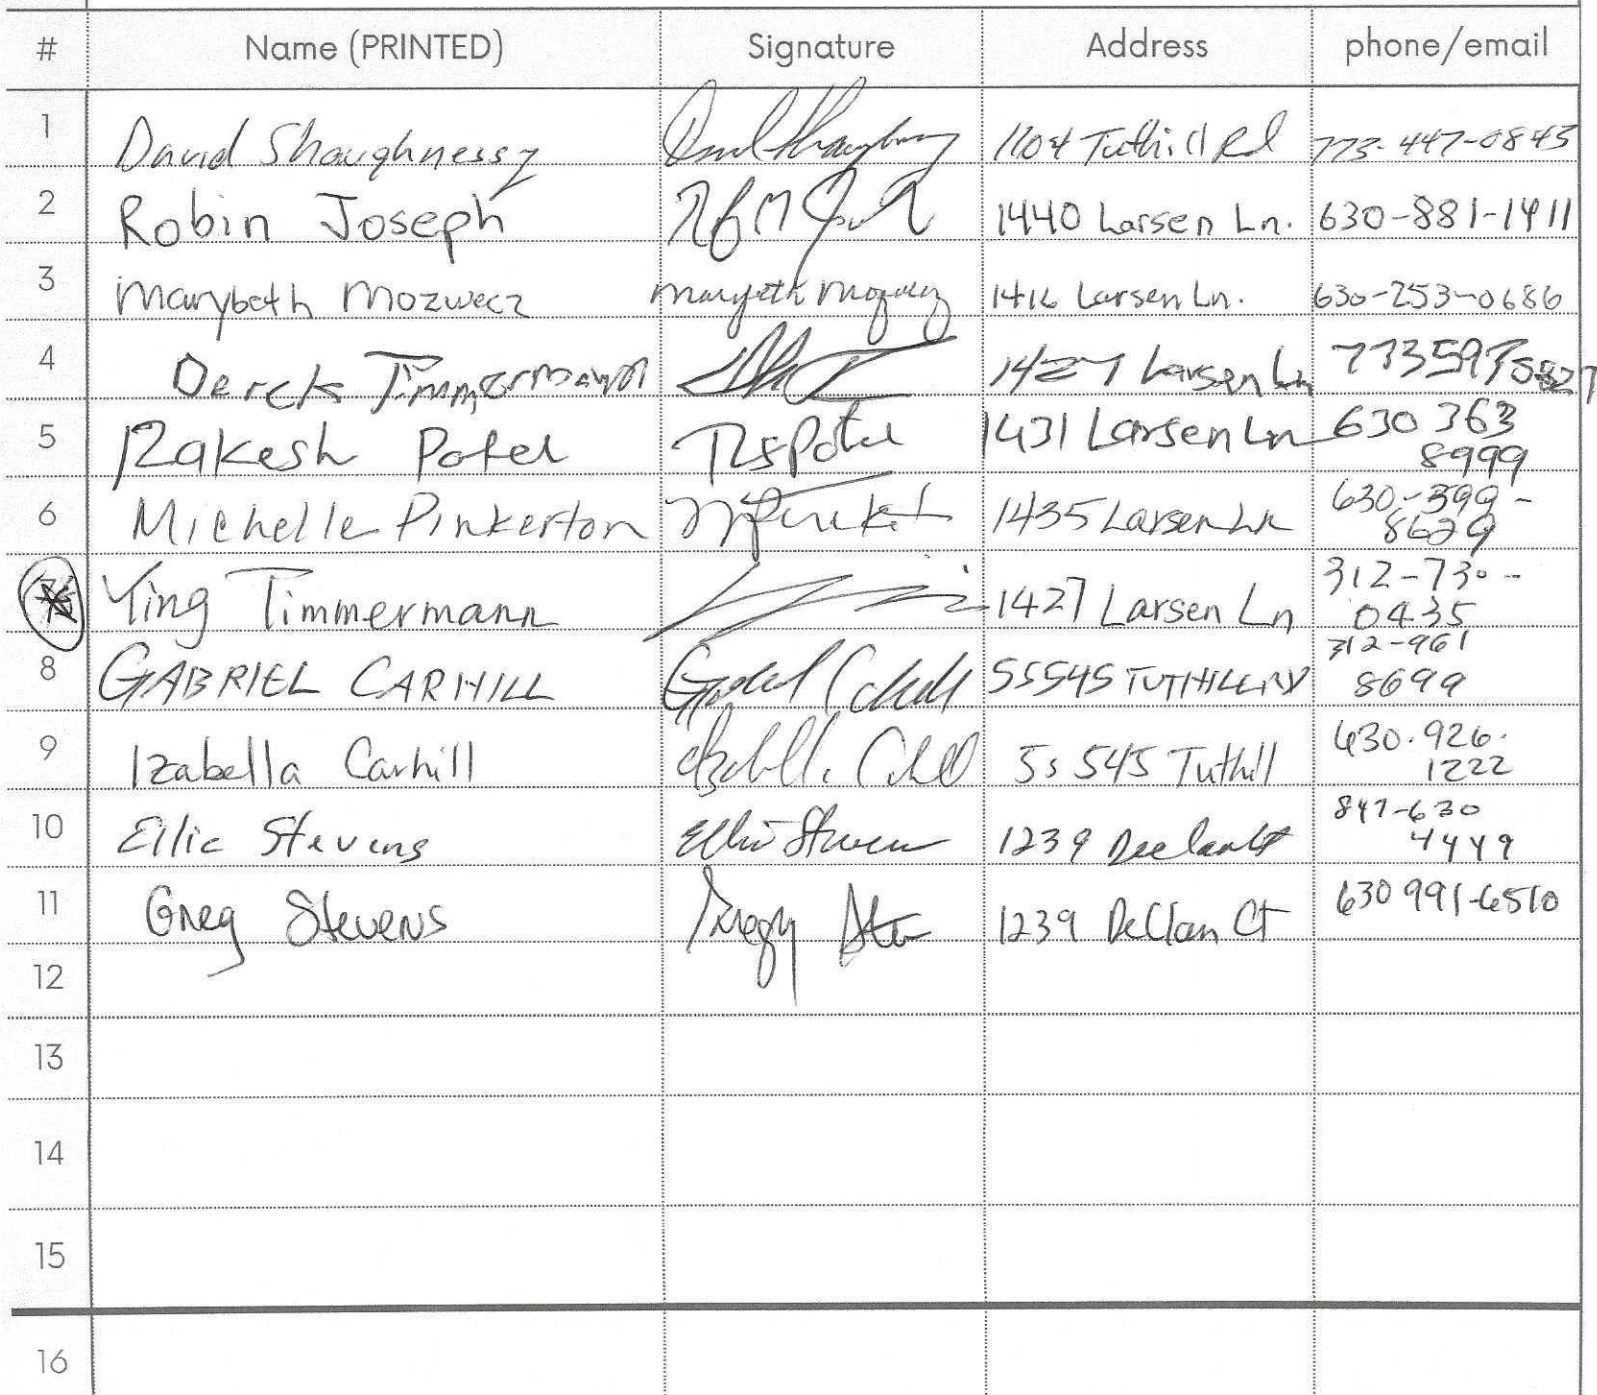 # Name (PRINTED) Signature Address phone/email
1 David Shaughnessy 1104 Tuthill Rd 773-447-0843
2 Robin Joseph 1440 Larsen Ln. 630-881-1411
3 Marybeth Mozwecz 1416 Larsen Ln. 630-253-0686
4 Derek Timmermann 1427 Larsen Ln 773597
5 Rakesh Patel RSPatel 1431 Larsen Ln 630 363
8999
6 Michelle Pinkerton 1435 Larsen Ln 630-399-
8629
7 Ying Timmermann 1427 Larsen Ln 312-730-
0435
8 GABRIEL CARHILL 5S545 TUTHILL RD 312-961
8699
9 Izabella Carhill 5s 545 Tuthill 630.926.
1222
10 Ellie Stevens Ellie Stevens 1239 Declan Ct 847-630
4449
11 Greg Stevens 1239 DeClan Ct 630 991-6510
12
13
14
15
16